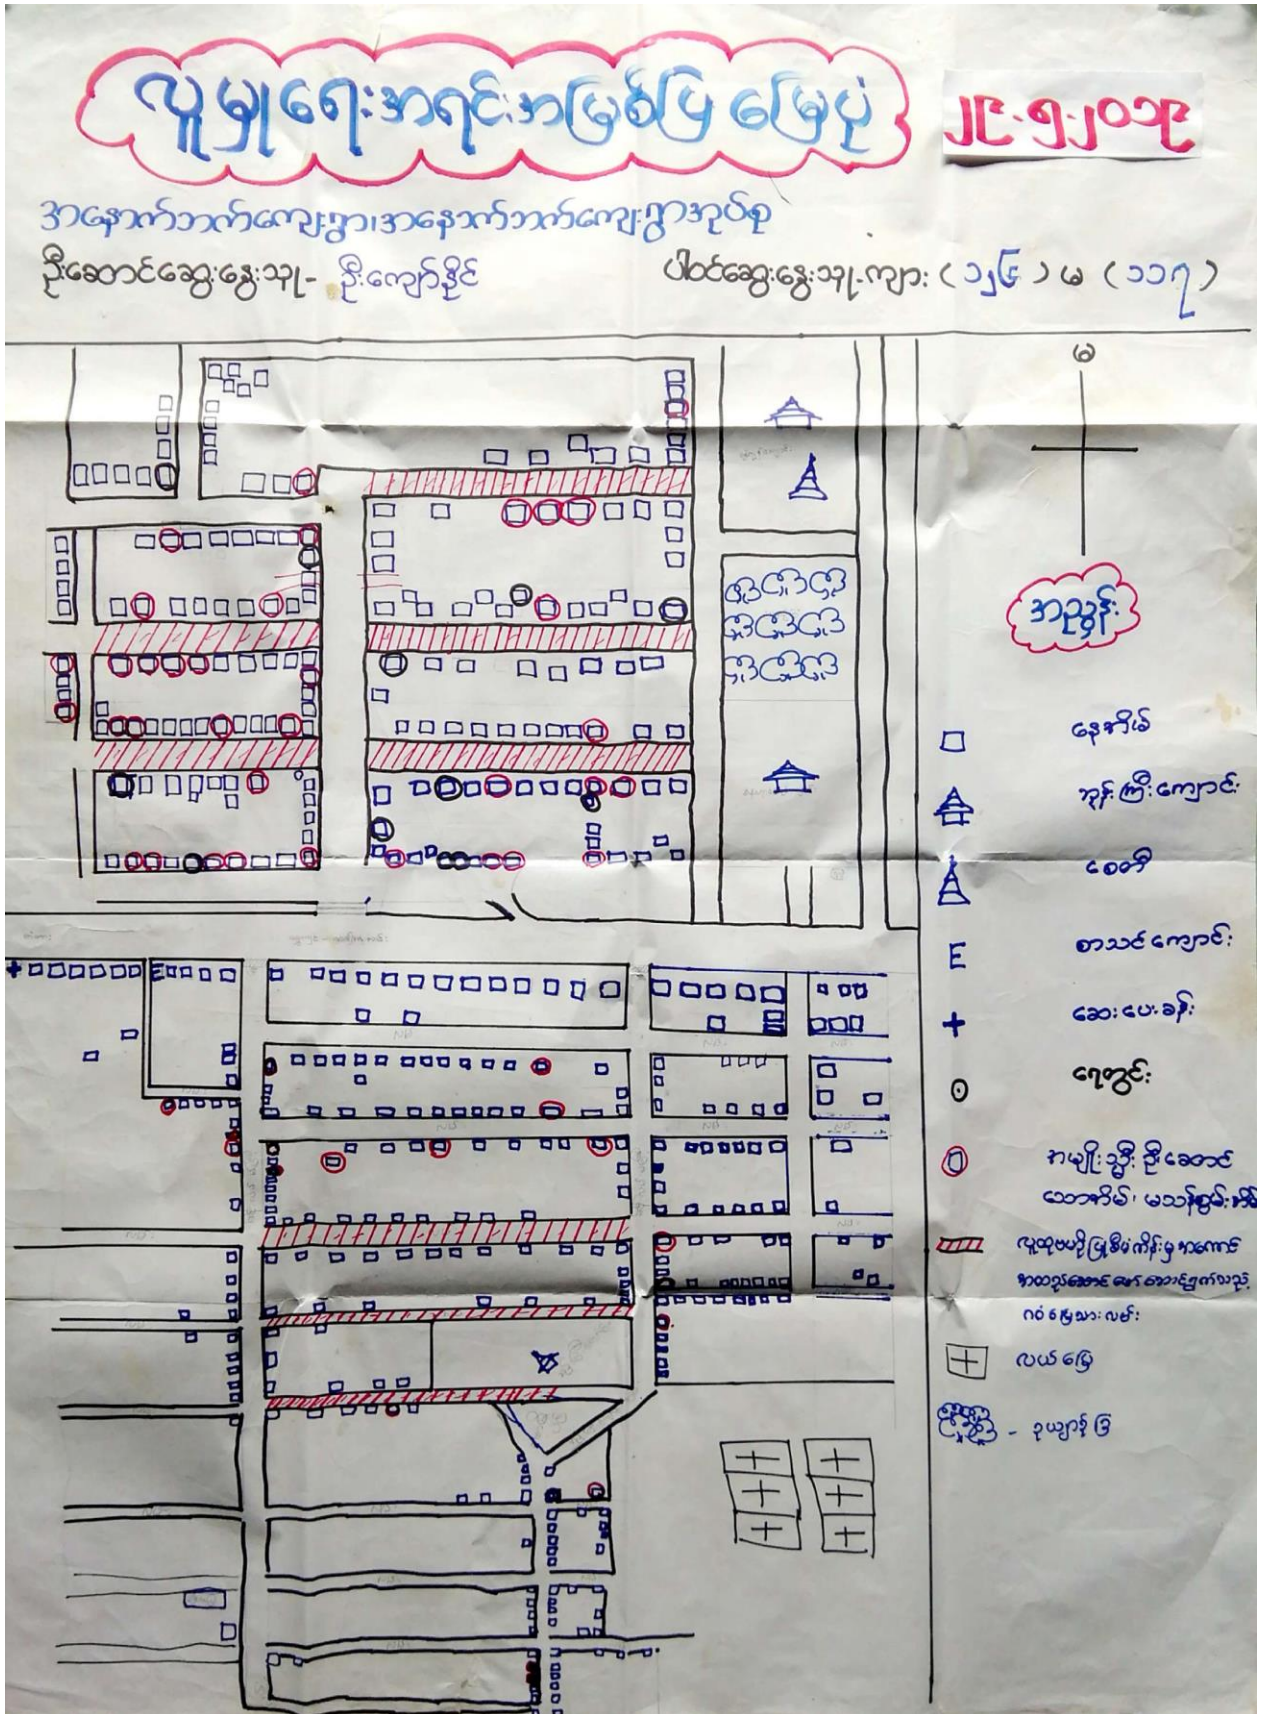 လူမှုရေးအရင်းအမြစ်ပြ မြေပုံ
၂၉.၅.၂၀၁၉
အနောက်ဘက်ကျေးရွာ၊အနောက်ဘက်ကျေးရွာအုပ်စု
ဦးဆောင်ဆွေးနွေးသူ- ဦးကျော်နိုင်
ပါဝင်ဆွေးနွေးသူ-ကျား (၁၂၆) မ (၁၁၇)
မ
အညွှန်း
နေအိမ်
ဘုန်းကြီးကျောင်း
စေတီ
E စာသင်ကျောင်း
+ ဆေးပေးခန်း
ရေတွင်း
အမျိုးသ္မီးဦးဆောင်
သောအိမ်၊ မသန်စွမ်းအိမ်
လူထုဗဟိုပြုစီမံကိန်းမှ အကောင်
အထည်ဖော်ဆောင်ရွက်သည့်
ဂဝံမြေသားလမ်း
လယ်မြေ
- ဥယျာဉ်ခြံ